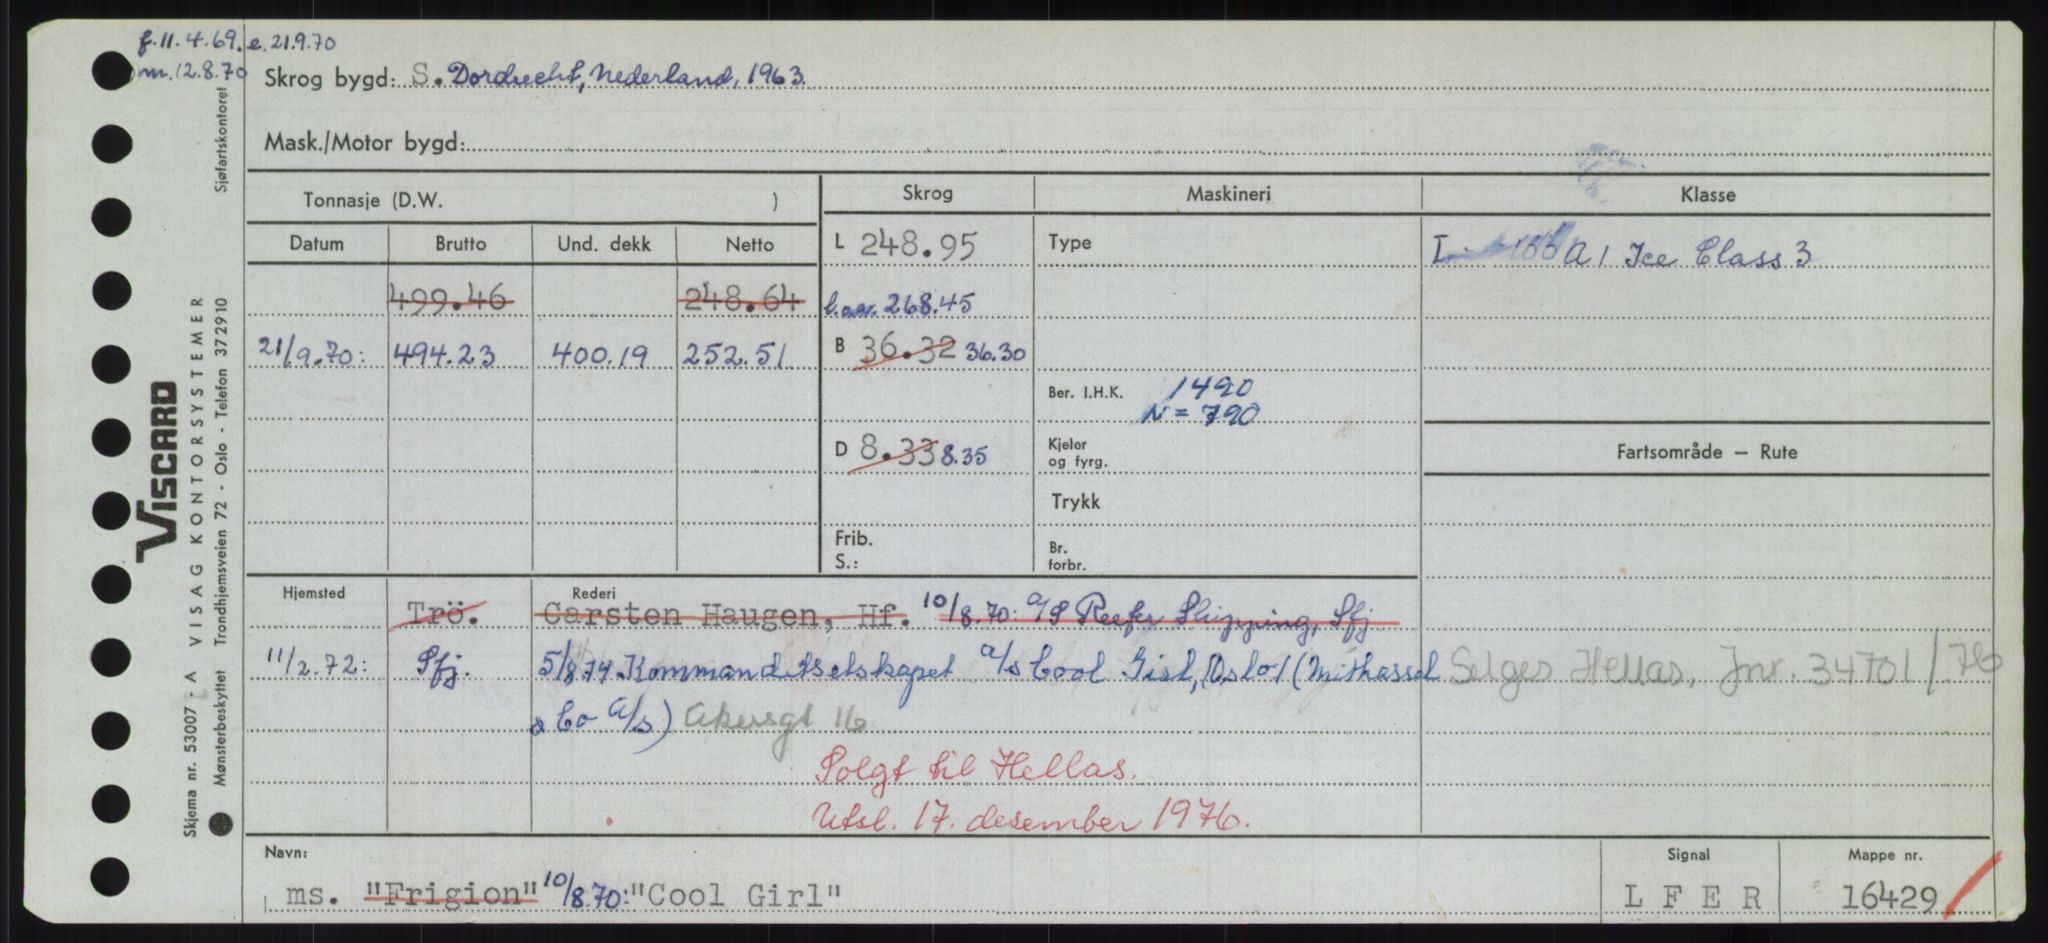 f. 11.4.69. e. 21.9.70
m. 12.8.70
Skrog bygd: S. Dordrecht, Nederland, 1963.
Mask./Motor bygd:
Tonnasje (D.W. )
Skrog
Maskineri
Klasse
Datum
Brutto
Und. dekk
Netto
L 248.95
Type
A 1 Ice Class 3
499.46
248.64
l.o.a. 268.45
21/9.70: 494.23 400.19 252.51
B 36.32 36.30
Ber. I.H.K. 1490
N = 790
D 8.33 8.35
Kjeler
og fyrg.
Fartsområde — Rute
Trykk
Frib.
S.:
Br.
forbr.
Hjemsted
Rederi
Trö. Carsten Haugen, Hf. 10/8.70: A/S Reefer Shipping, Sfj
11/2.72: Sfj. 5/8.74. Kommandittselskapet A/S Cool Girl, (Oslo) (Mithassel
& Co A/S) Akersgt 16
Selges Hellas, Jnr. 34701/76
Solgt til Hellas.
Utsl. 17. desember 1976.
Navn:
ms. "Frigion" 10/8.70: "Cool Girl"
Signal
L F E R
Mappe nr.
16429
VISCARD
Skjema nr. 53007 - A VISAG KONTORSYSTEMER
Mønsterbeskyttet Trondhjemsveien 72 - Oslo - Telefon 372910 Sjøfartskontoret